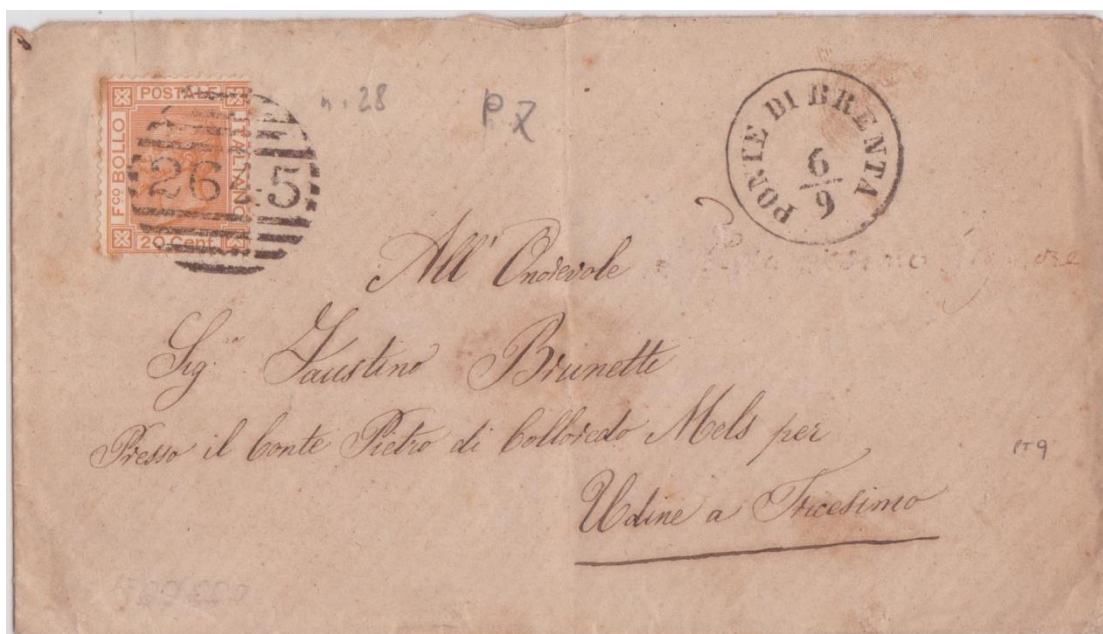 POSTALE
F.co BOLLO
ITALIANO
20 Cent
26 5
n. 28
P. 7
PONTE DI BRENTA
6
9
All' Onorevole
Sig. Faustino Brunetti
Presso il Conte Pietro di Colloredo Mels per
Udine a Tricesimo
PT 9